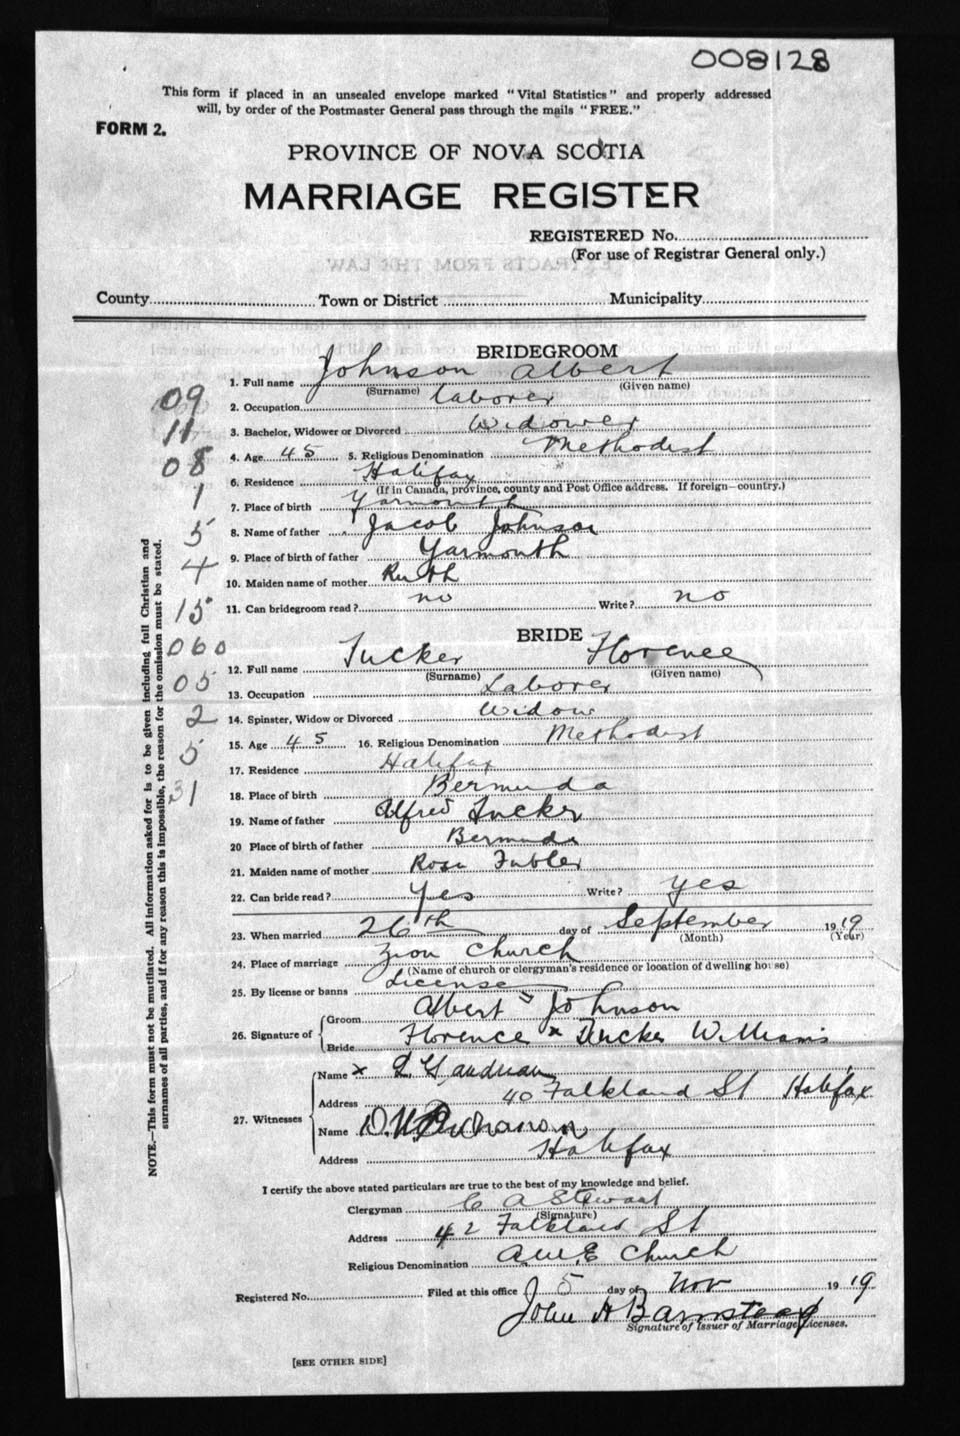 008128
This form if placed in an unsealed envelope marked "Vital Statistics" and properly addressed
will, by order of the Postmaster General pass through the mails "FREE."
FORM 2.
PROVINCE OF NOVA SCOTIA
MARRIAGE REGISTER
REGISTERED No.
(For use of Registrar General only.)
County Town or District Municipality
BRIDEGROOM
1. Full name Johnson Albert
(Surname) (Given name)
2. Occupation laborer
3. Bachelor, Widower or Divorced Widower
4. Age 45 5. Religious Denomination Methodist
6. Residence Halifax
(If in Canada, province, county and Post Office address. If foreign—country.)
7. Place of birth Yarmouth
8. Name of father Jacob Johnson
9. Place of birth of father Yarmouth
10. Maiden name of mother Ruth
11. Can bridegroom read? no Write? no
BRIDE
12. Full name Tucker Florence
(Surname) (Given name)
13. Occupation Laborer
14. Spinster, Widow or Divorced Widow
15. Age 45 16. Religious Denomination Methodist
17. Residence Halifax
18. Place of birth Bermuda
19. Name of father Alfred Tucker
20 Place of birth of father Bermuda
21. Maiden name of mother Rosa
22. Can bride read? Yes Write? yes
23. When married 26th day of September 1919
(Month) (Year)
24. Place of marriage Zion Church
(Name of church or clergyman's residence or location of dwelling house)
25. By license or banns License
26. Signature of
Groom Albert Johnson
Bride Florence x Tucker Williams
27. Witnesses
Name x
Address 40 Falkland St Halifax
Name
Address Halifax
I certify the above stated particulars are true to the best of my knowledge and belief.
Clergyman C A Stewart
(Signature)
Address 42 Falkland St
Religious Denomination A.M.E Church
Registered No. Filed at this office 5 day of Nov 1919
John A Barnstead
Signature of Issuer of Marriage Licenses.
[SEE OTHER SIDE]
09
11
08
1
5
4
15
060
05
2
5
31
NOTE.—This form must not be mutilated. All information asked for is to be given including full Christian and
surnames of all parties, and if for any reason this is impossible, the reason for the omission must be stated.